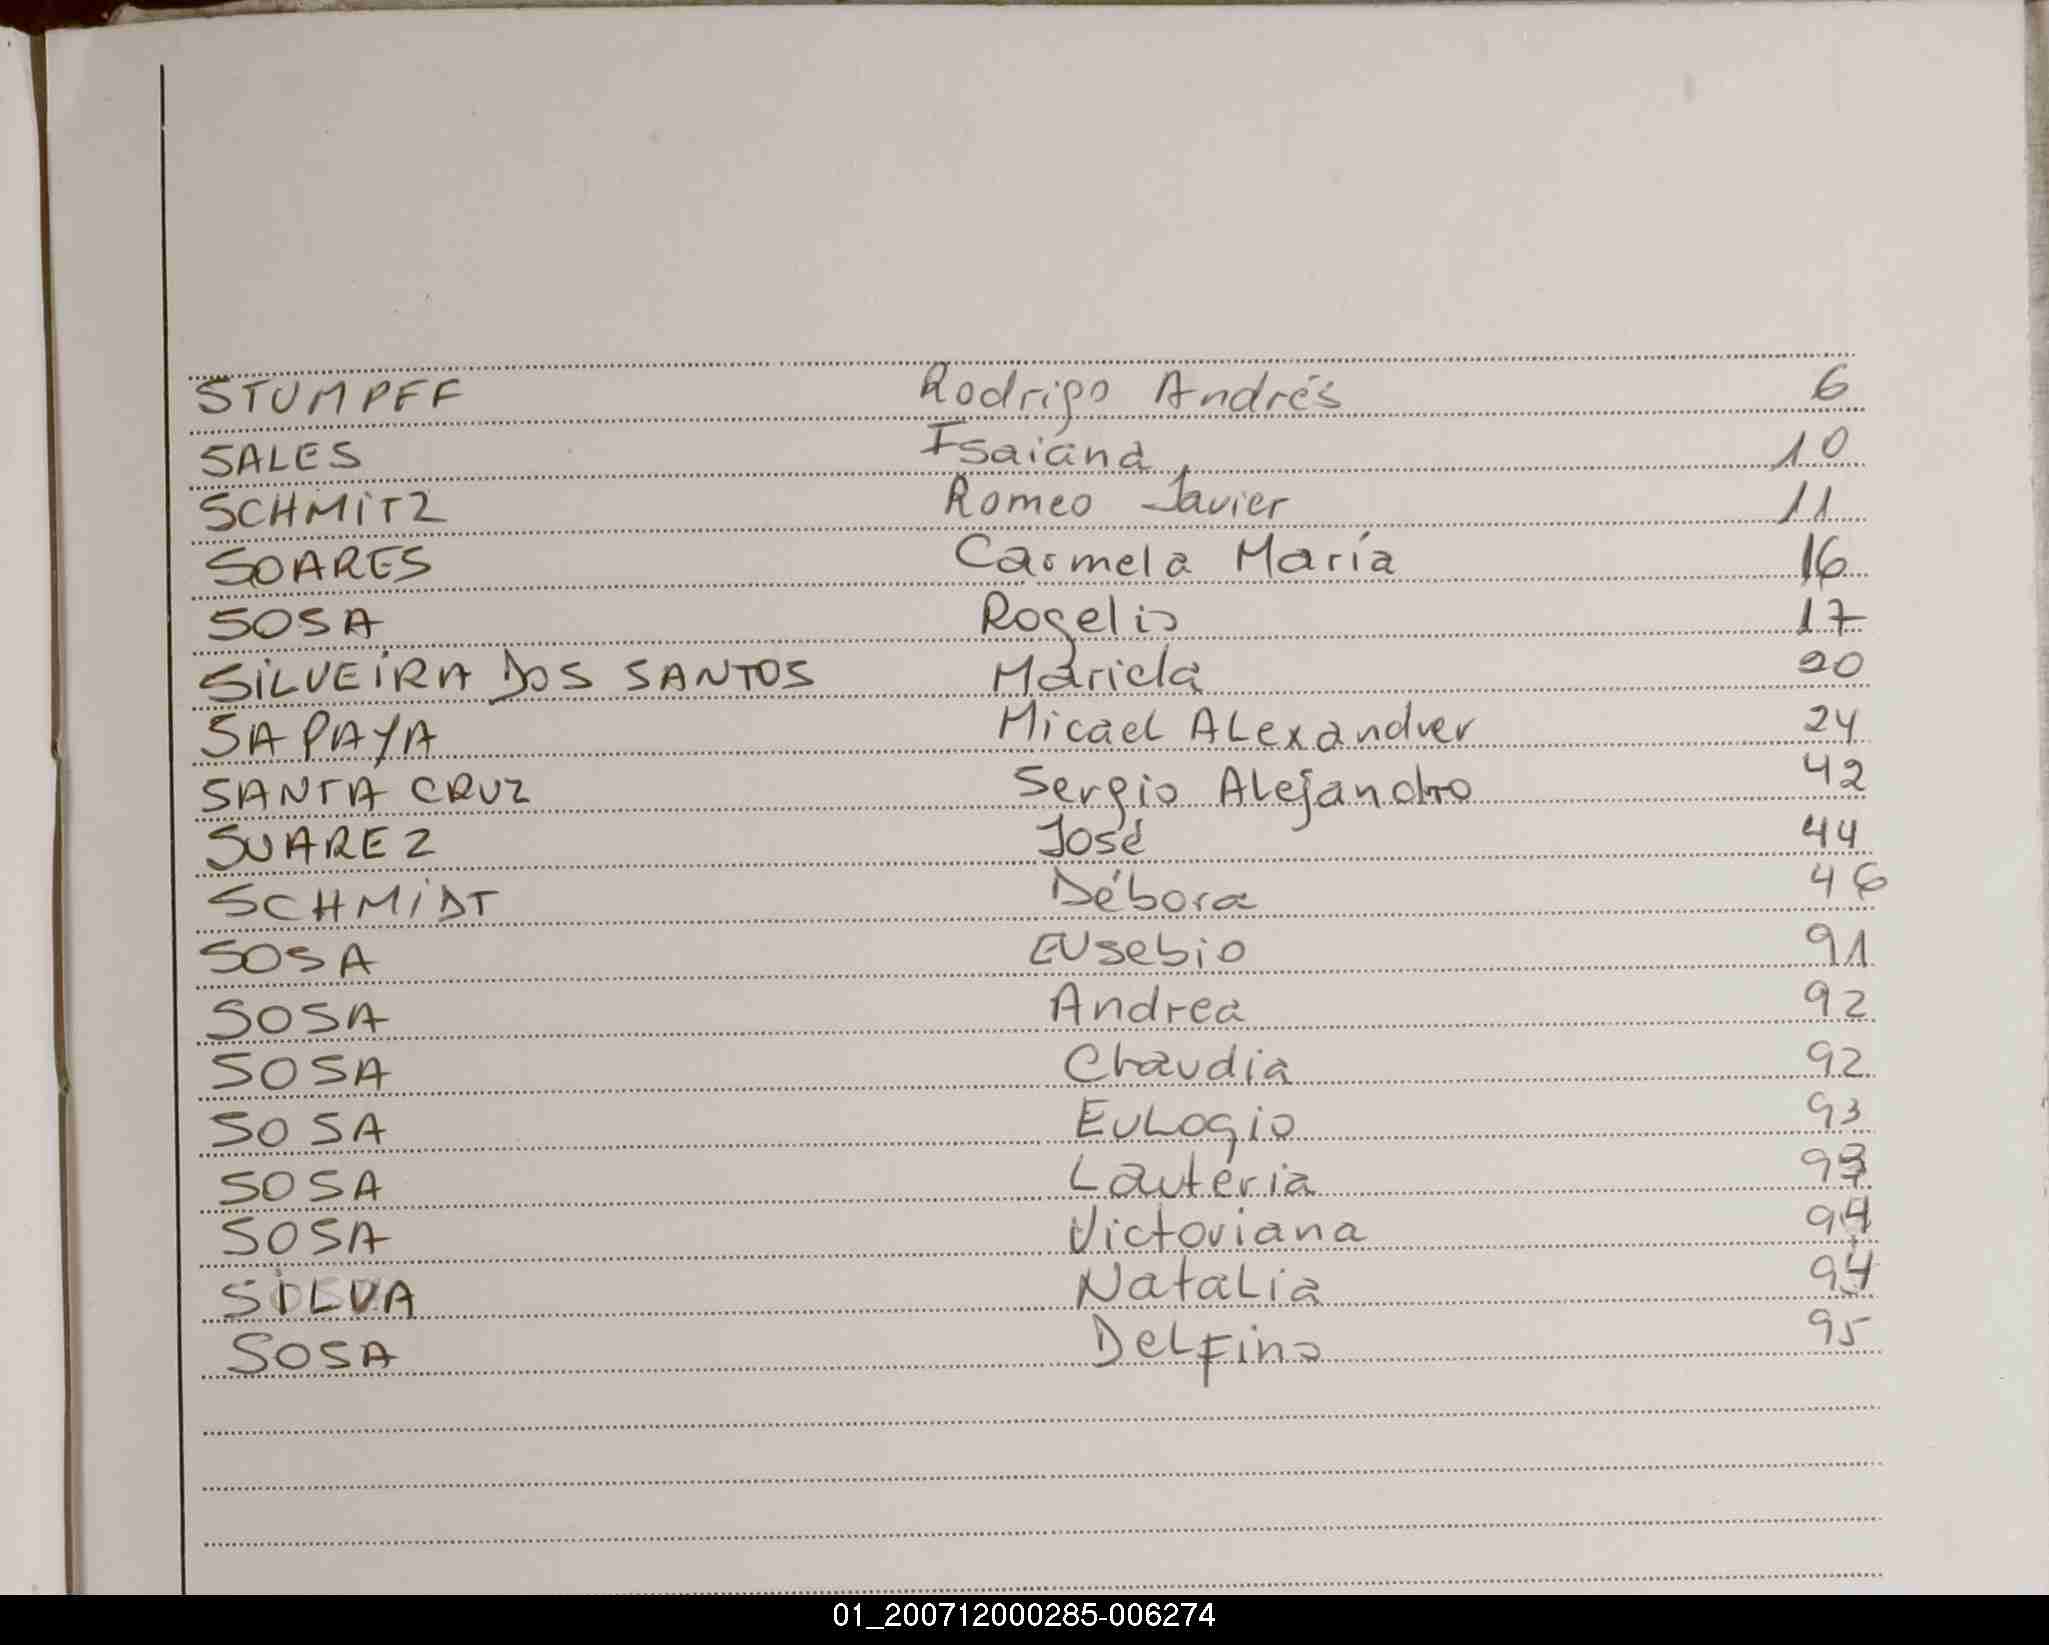 STUMPFF Rodrigo Andrés 6
SALES Isaiana 10
SCHMiTZ Romeo Javier 11
SOARES Carmela María 16
SOSA Rogelio 17
SiLVEiRA DOS SANTOS Mariela 20
SAPAYA Micael ALexander 24
SANTA CRUZ Sergio ALejandro 42
SUAREZ José 44
SCHMiDT Débora 46
SOSA EUsebio 91
SOSA Andrea 92
SOSA Claudia 92
SOSA EULogio 93
SOSA Lauteria 93
SOSA Victoriana 94
SiLVA NataLia 94
SOSA DeLFino 95
01_200712000285-006274